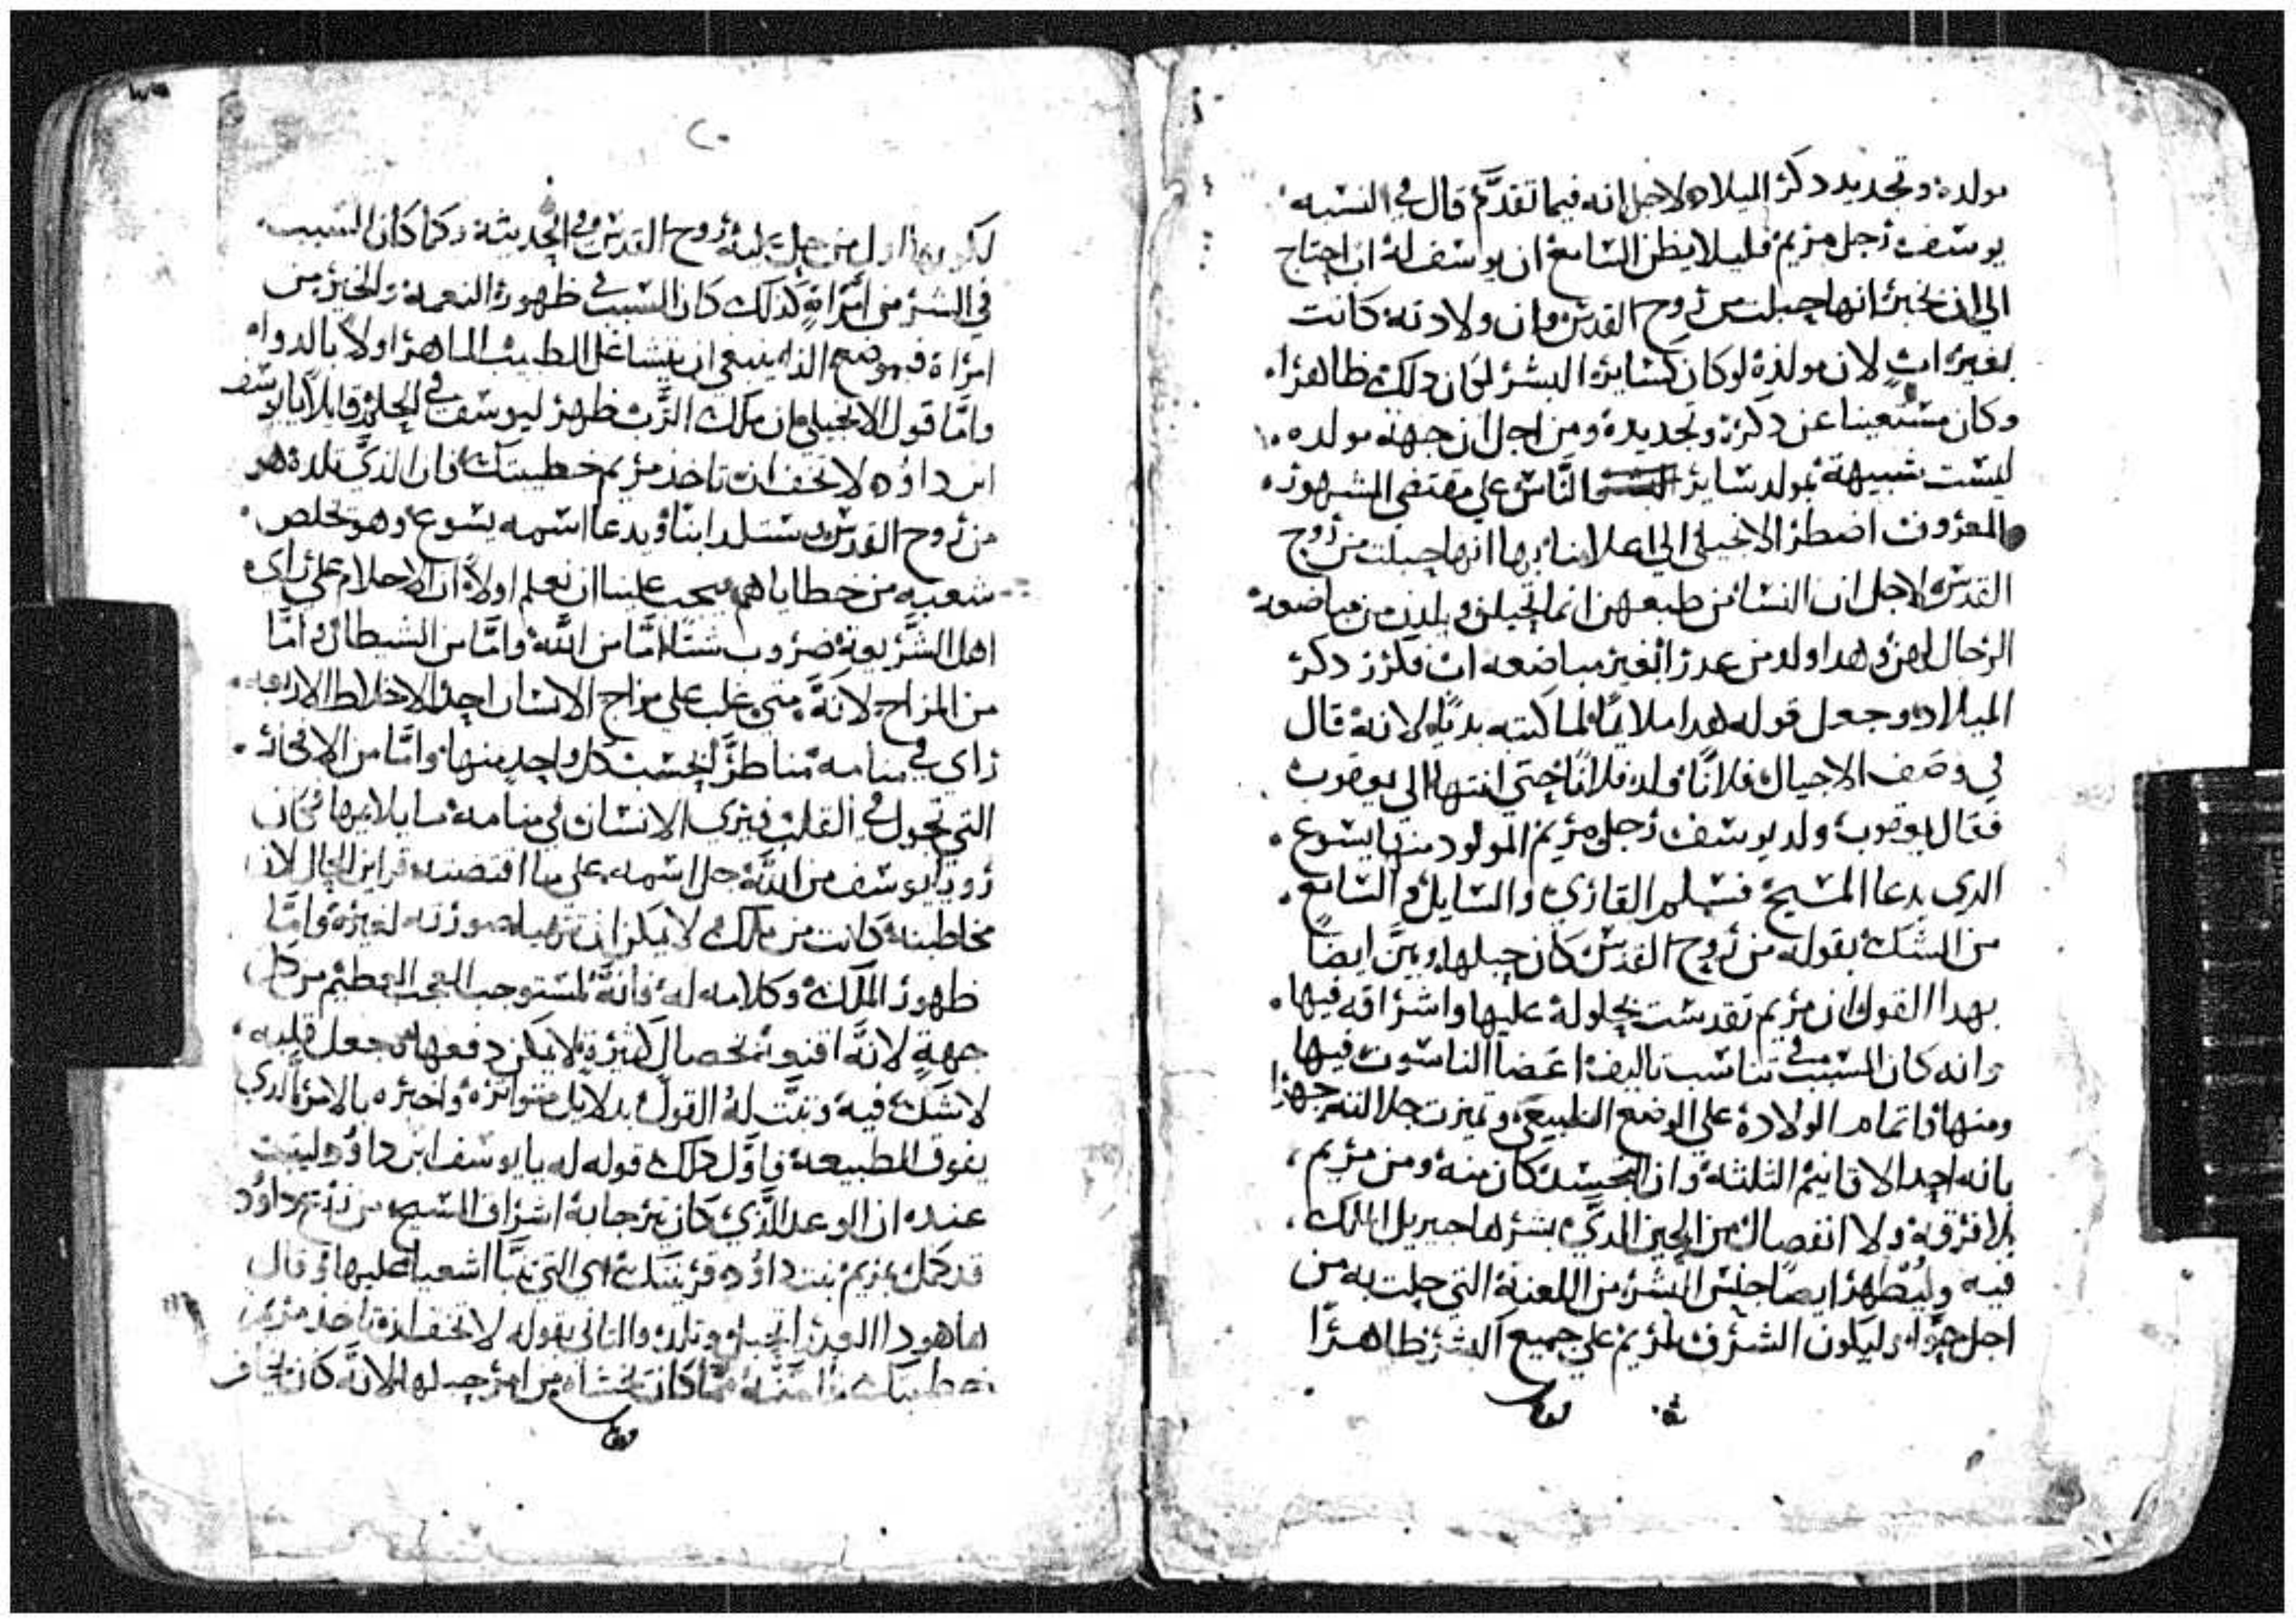 مولده وتجديد دكر الميلاد لاجل انه فيما تقدَّم قال في النسبه
يوسف رجل مريم فليلا يظن السامع ان يوسف له ابن احتاج
الي ان يخبر انها حبلت من روح القدس وان ولادته كانت
بغير اب لان مولده لو كان كساير البشر لكان دلك ظاهرا
وكان مستعينا عن دكره وتجديده ومن اجل ان جهة مولده
ليست شبيهة بمولد ساير الناس علي مقتضي المشهور
المعروف اضطر الانجيلي الي اعلامنا بها انها حبلت من روح
القدس لاجل ان النسا من طبعهن انما يحبلن ويلدن من مباضعه
الرجال لهن وهدا ولد من عدرا بغير مباضعه اب فكرر دكر
الميلاد وجعل قوله هدا ملايمًا لما كتبه بديًا لانه قال
في وصف الاجيال فلانًا ولد فلانًا حتي انتها الي يعقوب
فقال يعقوب ولد يوسف رجل مريم المولود منها يسوع
الدي يدعا المسيح فسلم القاري والسايل والسامع
من الشك بقوله من روح القدس كان حبلها وبين ايضًا
بهدا القول ان مريم تقدست بحلوله عليها واشراقه فيها
وانه كان السبب في تناسب تاليف اعضا الناسوت فيها
ومنها فاتمام الولادة علي الوضع الطبيعي وتميزت جلالته جهرًا
بانه احد الاقانيم الثلثة وان التجسد كان منه ومن مريم
بلا فرقة ولا انفصال من الحين الدي بشرها جبريل الملك
فيه وليُطهر ايضًا جنس البشر من اللعنة التي حلت به من
اجل حوَّا وليكون الشرف لمريم علي جميع البشر ظاهرًا
لكن بهدا اول من حلت عليه روح القدس في الحديثة وكما كان السبب
في الشر من امراةٍ كذلك كان السبب في ظهور النعمة والخير من
امراة فموضع الدا ينبغي ان يتشاغل الطبيب الماهر اولا بالدواه
وامَّا قول الانجيلي ان ملاك الرَّب ظهر ليوسف في الحلم قايلاً يا يوسف
ابن داوُد لا تخف ان تاخد مريم خطيبتك فان الذي تلده هو
من روح القدس وستلد ابنًا ويدعا اسمه يسوع وهو يخلص
شعبه من خطاياهم يجب علينا ان نعلم اولاً ان الاحلام علي راي
اهل الشَّريعة ضروب شتَّا امَّا من اللَّه وامَّا من الشيطان وامَّا
من المزاج لانَّه متي غلب علي مزاج الانسان احد الاخلاط الاربعه
راي في منامه مناظرًا بحسب كل واحدٍ منها وامَّا من الافكار
التي تجول في القلب فيري الانسان في منامه ما يلايمها فكان
رويا يوسف من اللَّه جل اسمه علي ما اقتضته قراين الحال لان
مخاطبته كانت من ملاك لا يمكن ان تتهيا صورته لغيره وامَّا
ظهور الملاك وكلامه له فانَّه لمستوجب العجب العظيم من كل
جهةٍ لانَّه اقنوم بخصالٍ كثيرةٍ لا يمكن دفعها جعل قلبه
لا شك فيه وثبَّت لهُ القول بدلايل متواتره واخبره بالامر الدي
يفوق الطبيعة فاوَّل دلك قوله له يا يوسف ابن داوُد ليثبت
عنده ان الوعد الَّذي كان نيرجابة اشراف المسيح من زرع داوُد
قد كمل بمريم بنت داوُد قرينتك اي التي تنبَّا اشعيا عليها وقال
ها هودا العدرا تحبل وتلد والتاني بقوله لا تخف ان تاخد مريم
خطيبتك فامنه ممَّا كان يخشاه من امر حبلها لانَّه كان يخاف